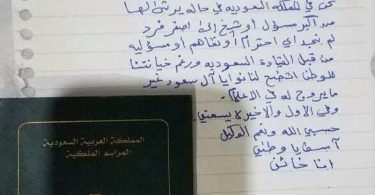 نحن في المملكه السعوديه في حاله يرثى لها
من اكبر مسؤل او شيخ إلى اصغر فرد
لم نجد اي احترام أو لقاهم او مسؤليه
من قبل القيادة السعوديه ورغم خيانتنا
للوطن اتضح لنا نوايا آل سعود غير
ما يروج له في الاعلام
وفي الاول والأخير لا يسعني
حسبي الله ونعم الوكيل
آسف يا وطني
انا خائن
المملكة العربية السعودية
المراسم الملكية